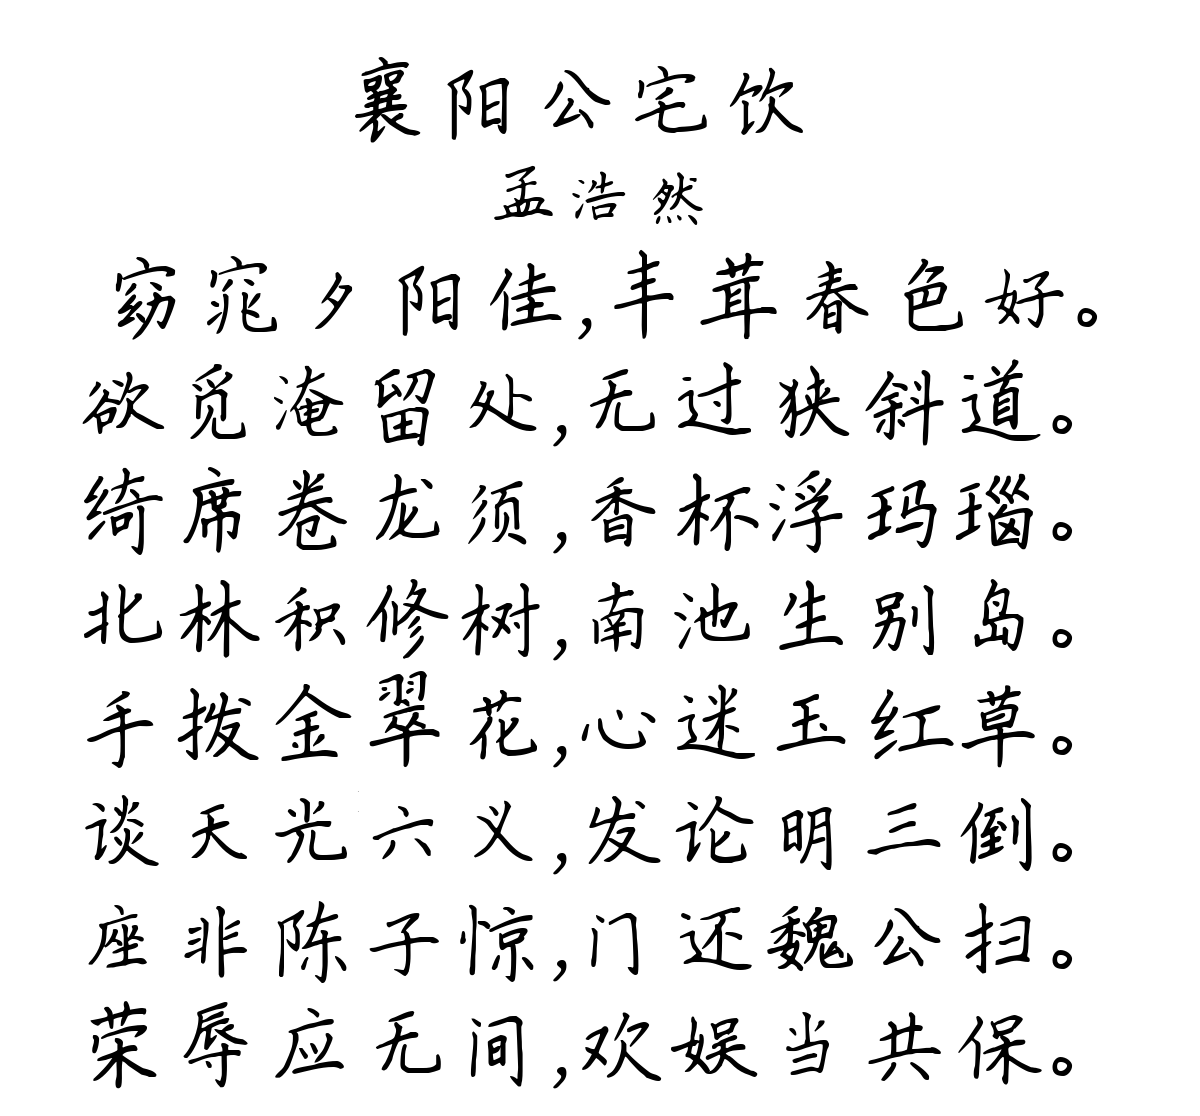 襄阳公宅饮
孟浩然
窈窕夕阳佳,丰茸春色好。
欲觅淹留处,无过狭斜道。
绮席卷龙须,香杯浮玛瑙。
北林积修树,南池生别岛。
手拨金翠花,心迷玉红草。
谈天光六义,发论明三倒。
座非陈子惊,门还魏公扫。
荣辱应无间,欢娱当共保。